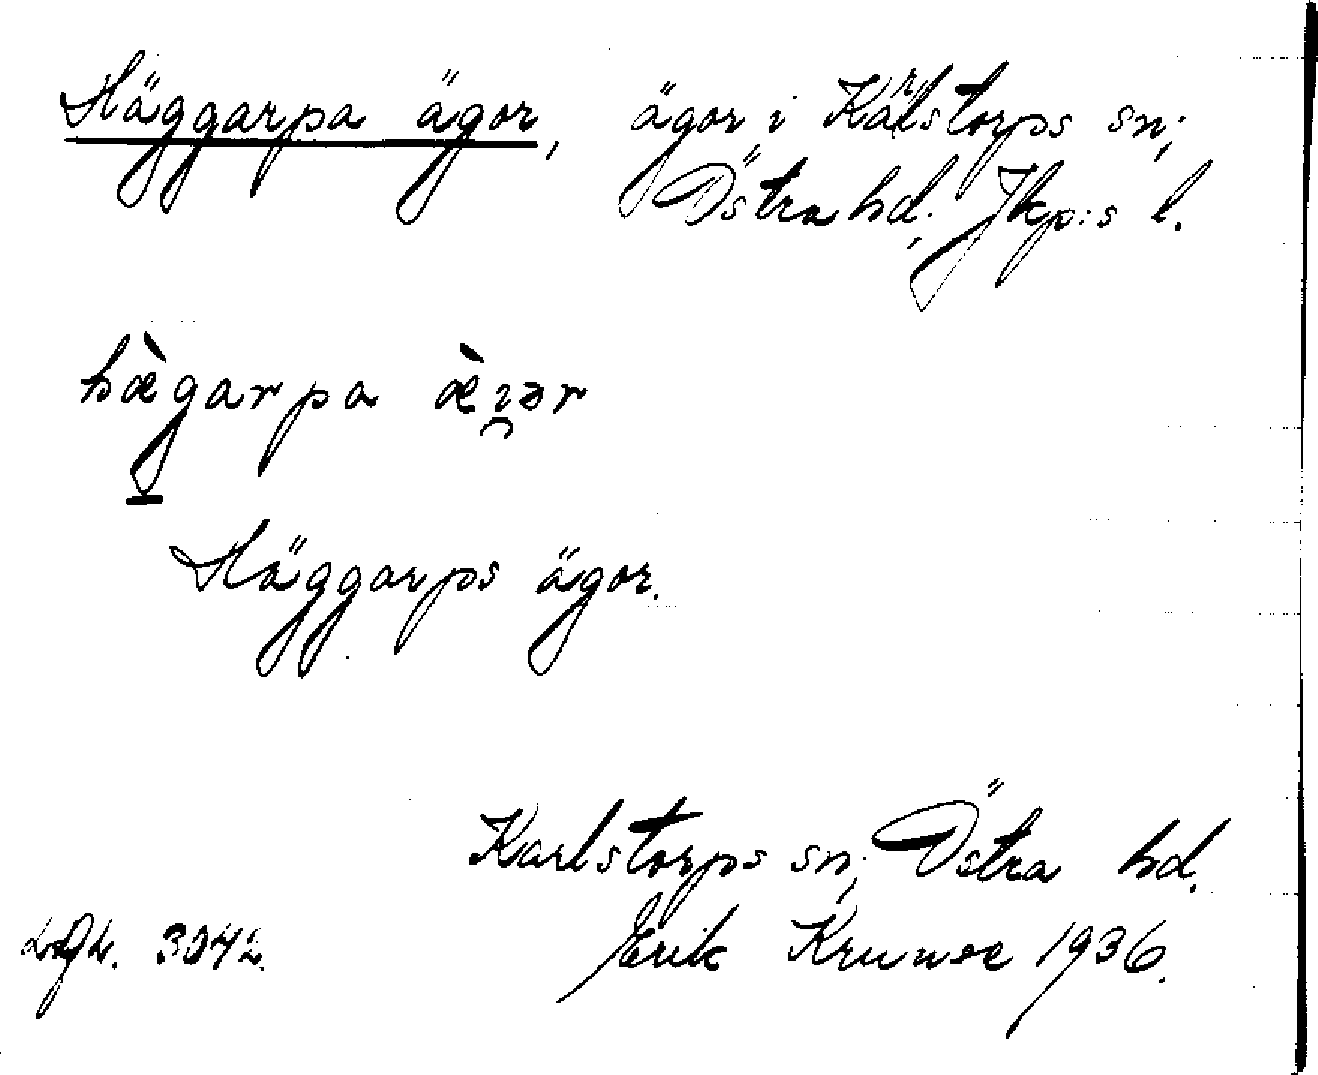 Häggarpa ägor, ägor i Karlstorps sn;
Östra hd. Jkp:s l.
hæ̀garpa æ̀ꝛər
Häggarps ägor.
Karlstorps sn; Östra hd.
3042. Erik Krunoe 1936.